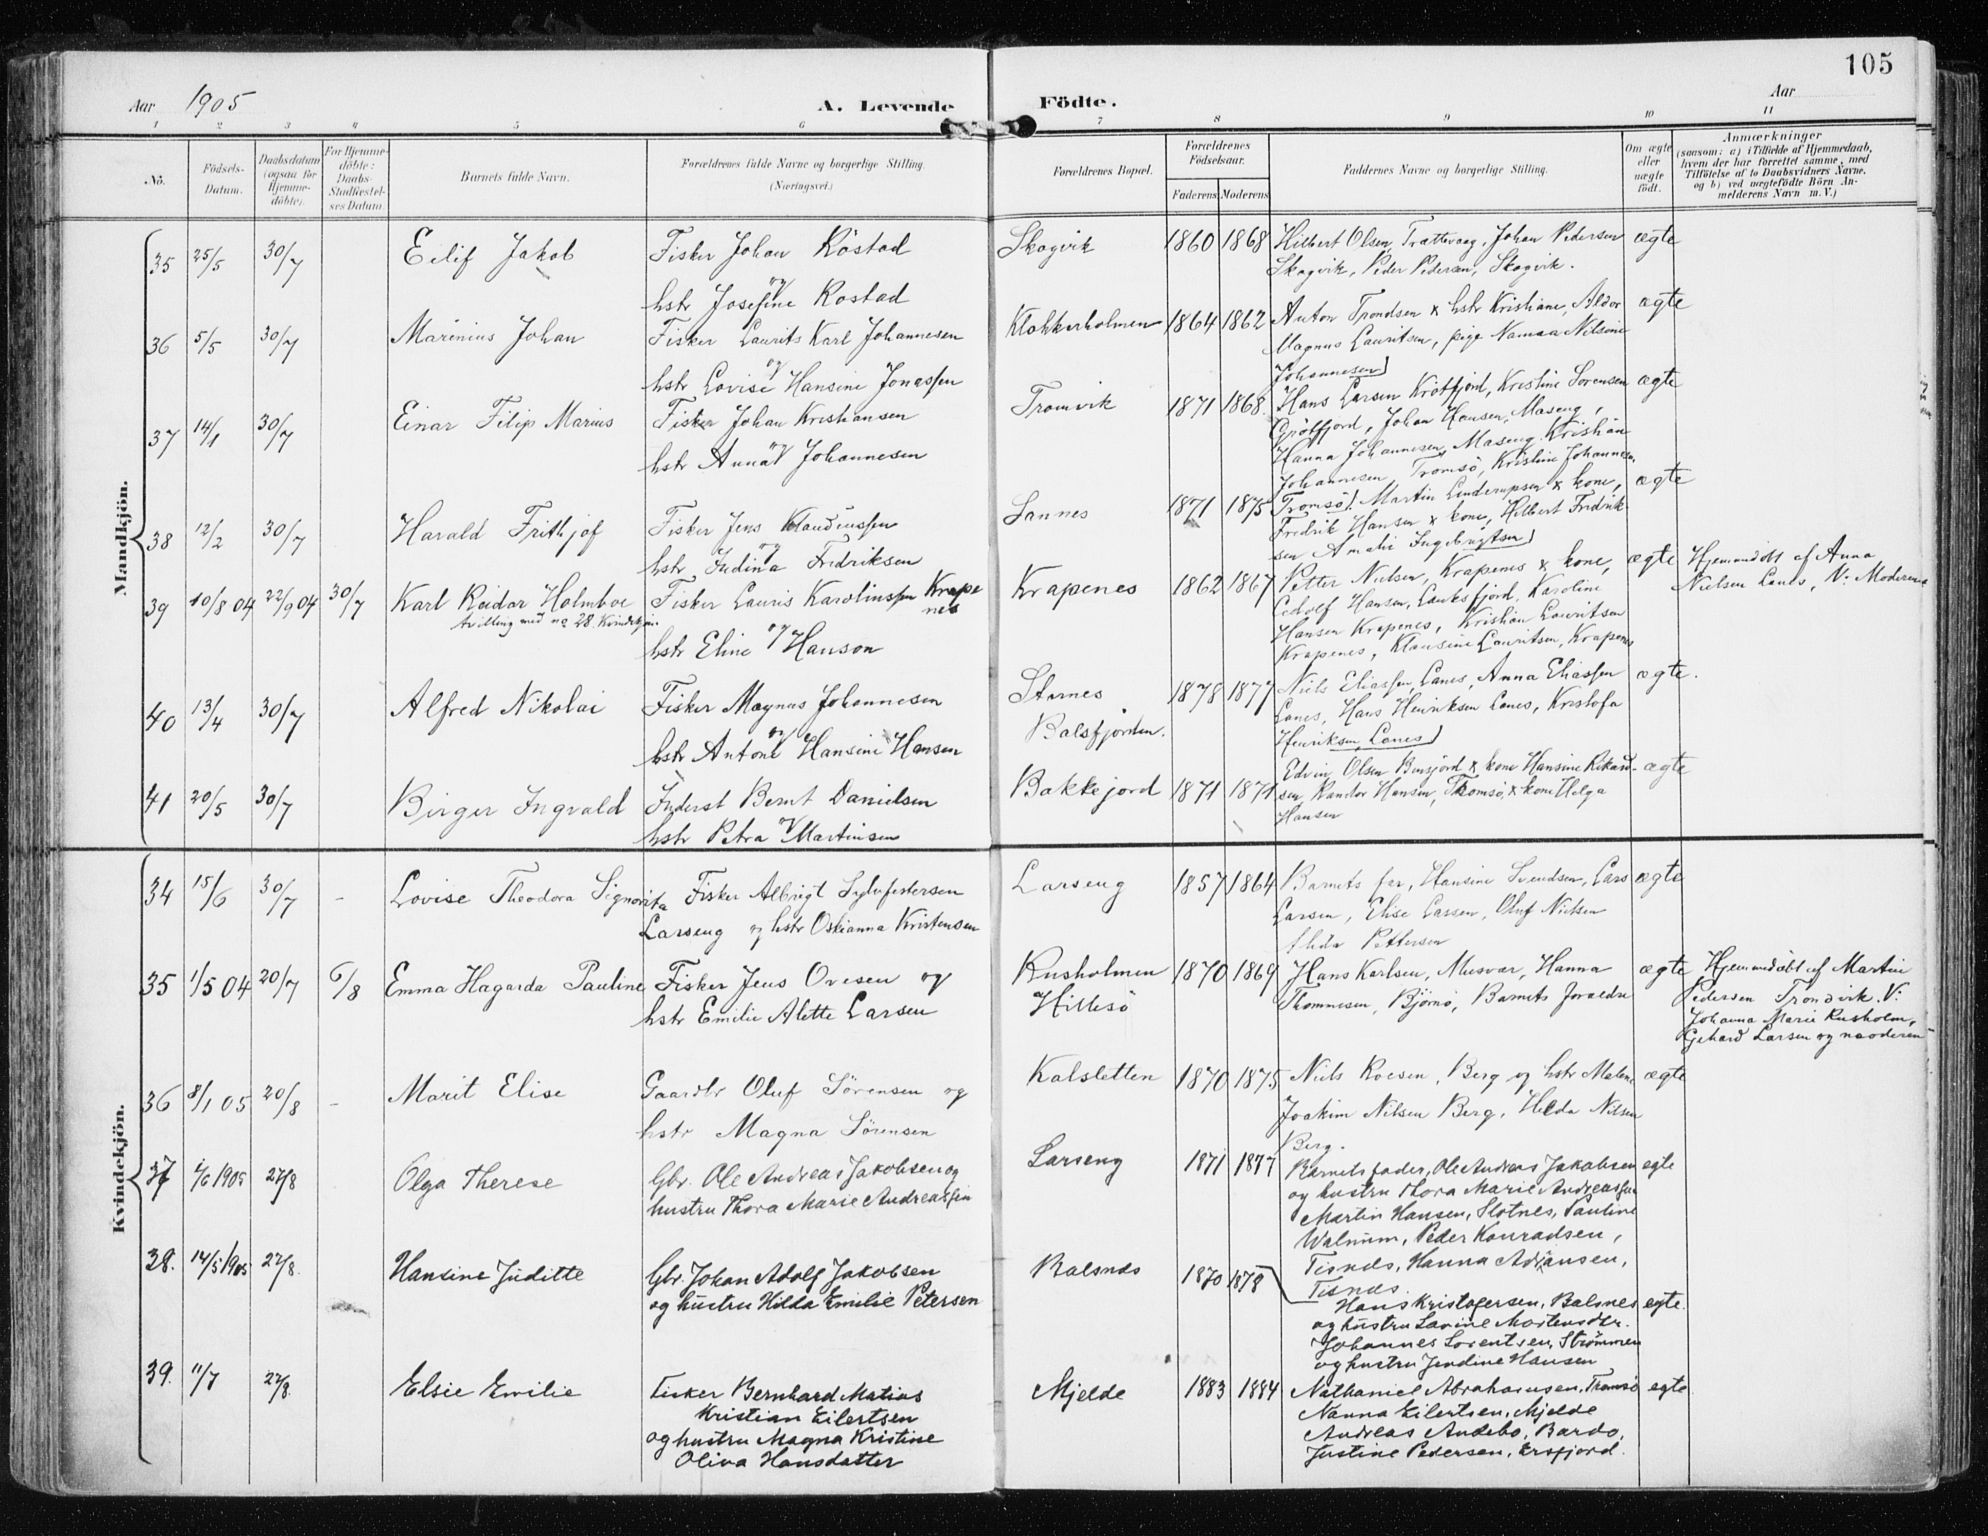 105
Aar 1905 A. Levende Födte. Aar
1 2 3 4 5 6 7 8 9 10 11
No. Födsels-Datum. Daabsdatum (ogsaa for Hjemme-döbte). For Hjemme-döbte: Daabs-Stadfæstel-ses Datum Barnets fulde Navn. Forældrenes fulde Navne og borgerlige Stilling. (Næringsvei.) Forældrenes Bopæl. Forældrenes Födselsaar. Faderens Moderens Faddernes Navne og borgerlige Stilling. Om ægte eller uægte födt. Anmærkninger (saasom: a) i Tilfælde af Hjemmedaab, hvem der har forrettet samme, med Tilföielse af to Daabsvidners Navne, og b) ved uægtefödte Börn An-melderens Navn m. V.)
Mandkjön.
35 25/5 30/7 Eilif Jakob Fisker Johan Röstad Skogvik 1860 1868 Hilbert Olsen, Trættevaag, Johan Pedersen ægte
og
hstr Josefine Rostad Skogvik, Peder Pedersen, Skogvik.
36 5/5 30/7 Marinius Johan Fisker Laurits Karl Johannesen Klokkerholmen 1864 1862 Anton Trondsen & hstr Kristiane, Aldor ægte
og
hstr Lovise Hansine Jonassen Magnus Lauritsen, pige Nilsine
Johannesen
37 14/1 30/7 Einar Filip Marius Fisker Johan Kristiansen Tromvik 1871 1868 Hans Larsen Krötfjord, Kristine Sorensen ægte
og
hstr Anna Johannesen Grötfjord, Johan Hansen, Maseng,
Hanna Johannesen, Maseng, Kristian
Johannesen Tromsö, Kristine Johannesen
38 12/2 30/7 Harald Frithjof Fisker Jens Klaudiussen Sannes 1871 1875 Tromsö. Martin Lenderupsen & kone, ægte
og
hstr Indina Fredriksen Fredrik Hansen & kone, Hilbert Fredrik-
sen Amalie Ingebrigtsen
39 10/8 04 22/9 04 30/7 Karl Reidar Holmboe Fisker Lauris Karolinssen Krapenes Krapenes 1862 1867 Petter Nielsen, Krapenes & kone, ægte Hjemmedöbt af Anna
Tvilling med no 28. Kvindekjön
og
hstr Eline Hanson Ledolf Hansen, Lanesfjord, Karoline Nielsen Lanes, V: Moderen
Hansen Krapenes, Kristian Lauritsen
Krapenes, Klausine Lauritsen, Krapenes
40 13/4 30/7 Alfred Nikolai Fisker Magnus Johannesen Stornes 1878 1877 Niels Eliassen, Lanes, Anna Eliassen ægte.
og
hstr Antone Hansine Hansen Balsfjorden. Lanes, Hans Henriksen Lanes, Kristofa
Henriksen, Lanes
41 20/5 30/7 Birger Ingvald Inderst Bernt Danielsen Bakkejord 1871 1871 Edvin Olsen Bensjord & kone Hansine Rikard- ægte
og
hstr Petra Martinsen sen, Randor Hansen, Tromsö, & kone Helga
Hansen
Kvindekjön.
34 15/6 30/7 - Lovise Theodora Signorita Fisker Albrigt Sylvfestersen Larseng 1857 1864 Barnets far, Hansine Svendsen, Lars ægte
Larseng og hstr Oskianna Kristensen Larsen, Elise Larsen, Oluf Nielsen
Pettersen
35 1/5 04 20/7 6/8 Emma Hagarda Pauline Fisker Jens Ovesen og Rusholmen 1870 1869 Hans Karlsen, Musvær, Hanna ægte Hjemmedöbt af Martin
hstr Emilie Alette Larsen Hillesö Thommesen, Bjørnö, Barnets foreldre Pedersen Trondvik. V:
Johanna Marie Rusholm,
Gehard Larsen og moderen
36 8/1 05 20/8 - Marit Elise Gaardbr Oluf Sörensen og Kalsletten 1870 1875 Niels Roesen, Berg og hstr Malene ægte
hstr Magna Sörensen Joakim Nilsen Berg, Helda Nilsen
Berg.
37 1/6 1905 27/8 Olga Therese Gbr. Ole Andreas Jakobsen og Larseng 1871 1877 Barnets fader, Ole Andreas Jakobsen egte
hustru Thora Marie Andreassen og hustru Thora Marie Andreassen
Martin Hansen, Slotnes, Pauline
Walnum, Peder Konradsen,
38. 14/5 1905 27/8. Hansine Juditte Gbr. Johan Adolf Jakobsen Balsnes 1870 1878 Tisnes, Hanna Adriansen,
og hustru Hilda Emilie Petersen Tisnes.
Hans Kristofersen, Balsnes egte.
og hustru Lavine Mortensdtr.
Johannes Lorentsen, Strömmen
og hustru Jendine Hansen
39. 11/7 27/8. Elsie Emilie Fisker Bernhard Matias Mjelde 1883 1884 Nathaniel Abrahamsen, Tromsö egte.
Kristian Eilertsen Nanna Eilertsen, Mjelde
og hustru Magna Kristine Andreas Andebo, Bardo,
Oliva Hansdatter Justine Pedersen, Ersfjord.